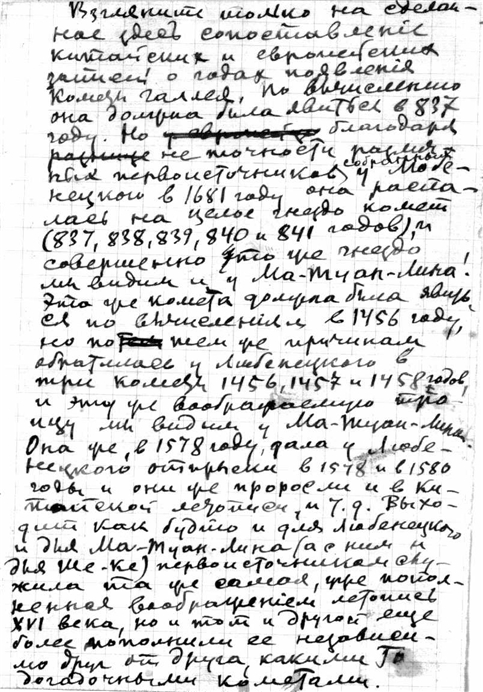 Взгляните только на сделан-
ное здесь сопоставленіе
китайских и европейских
записей о годах появленія
Кометы Галлея. По вычислению
она должна была явиться в 837
году. Но благодаря
не точности различ-
ных первоисточников, собранных у Любе-
нецкого в 1681 году она распа-
лась на целое гнездо комет
(837, 838, 839, 840 и 841 годов), и
совершенно это же гнездо
мы видим и у Ма-Туан-Лина!
Эта же комета должна была явить-
ся по вычисленіям в 1456 году,
но по тем же причинам
обратилась у Любенецкого в
три кометы 1456, 1457 и 1458 годов,
и эту же воображаемую тро-
ицу мы видим у Ма-Туан-Лина.
Она же, в 1578 году, дала у Любе-
нецкого отпрыски в 1578 и в 1580
годы и они же проросли и в Ки-
тайской летописи, и т. д. Выхо-
дит как будто и для Любенецкого
и для Ма-Туан-Лина (а с ним и
для Ше-Ке) первоисточником слу-
жила та же самая, уже попол-
ненная воображеніем летопись
XVI века, но и тот и другой еще
более пополнили ее независи-
мо друг от друга какими то
догадочными кометами.